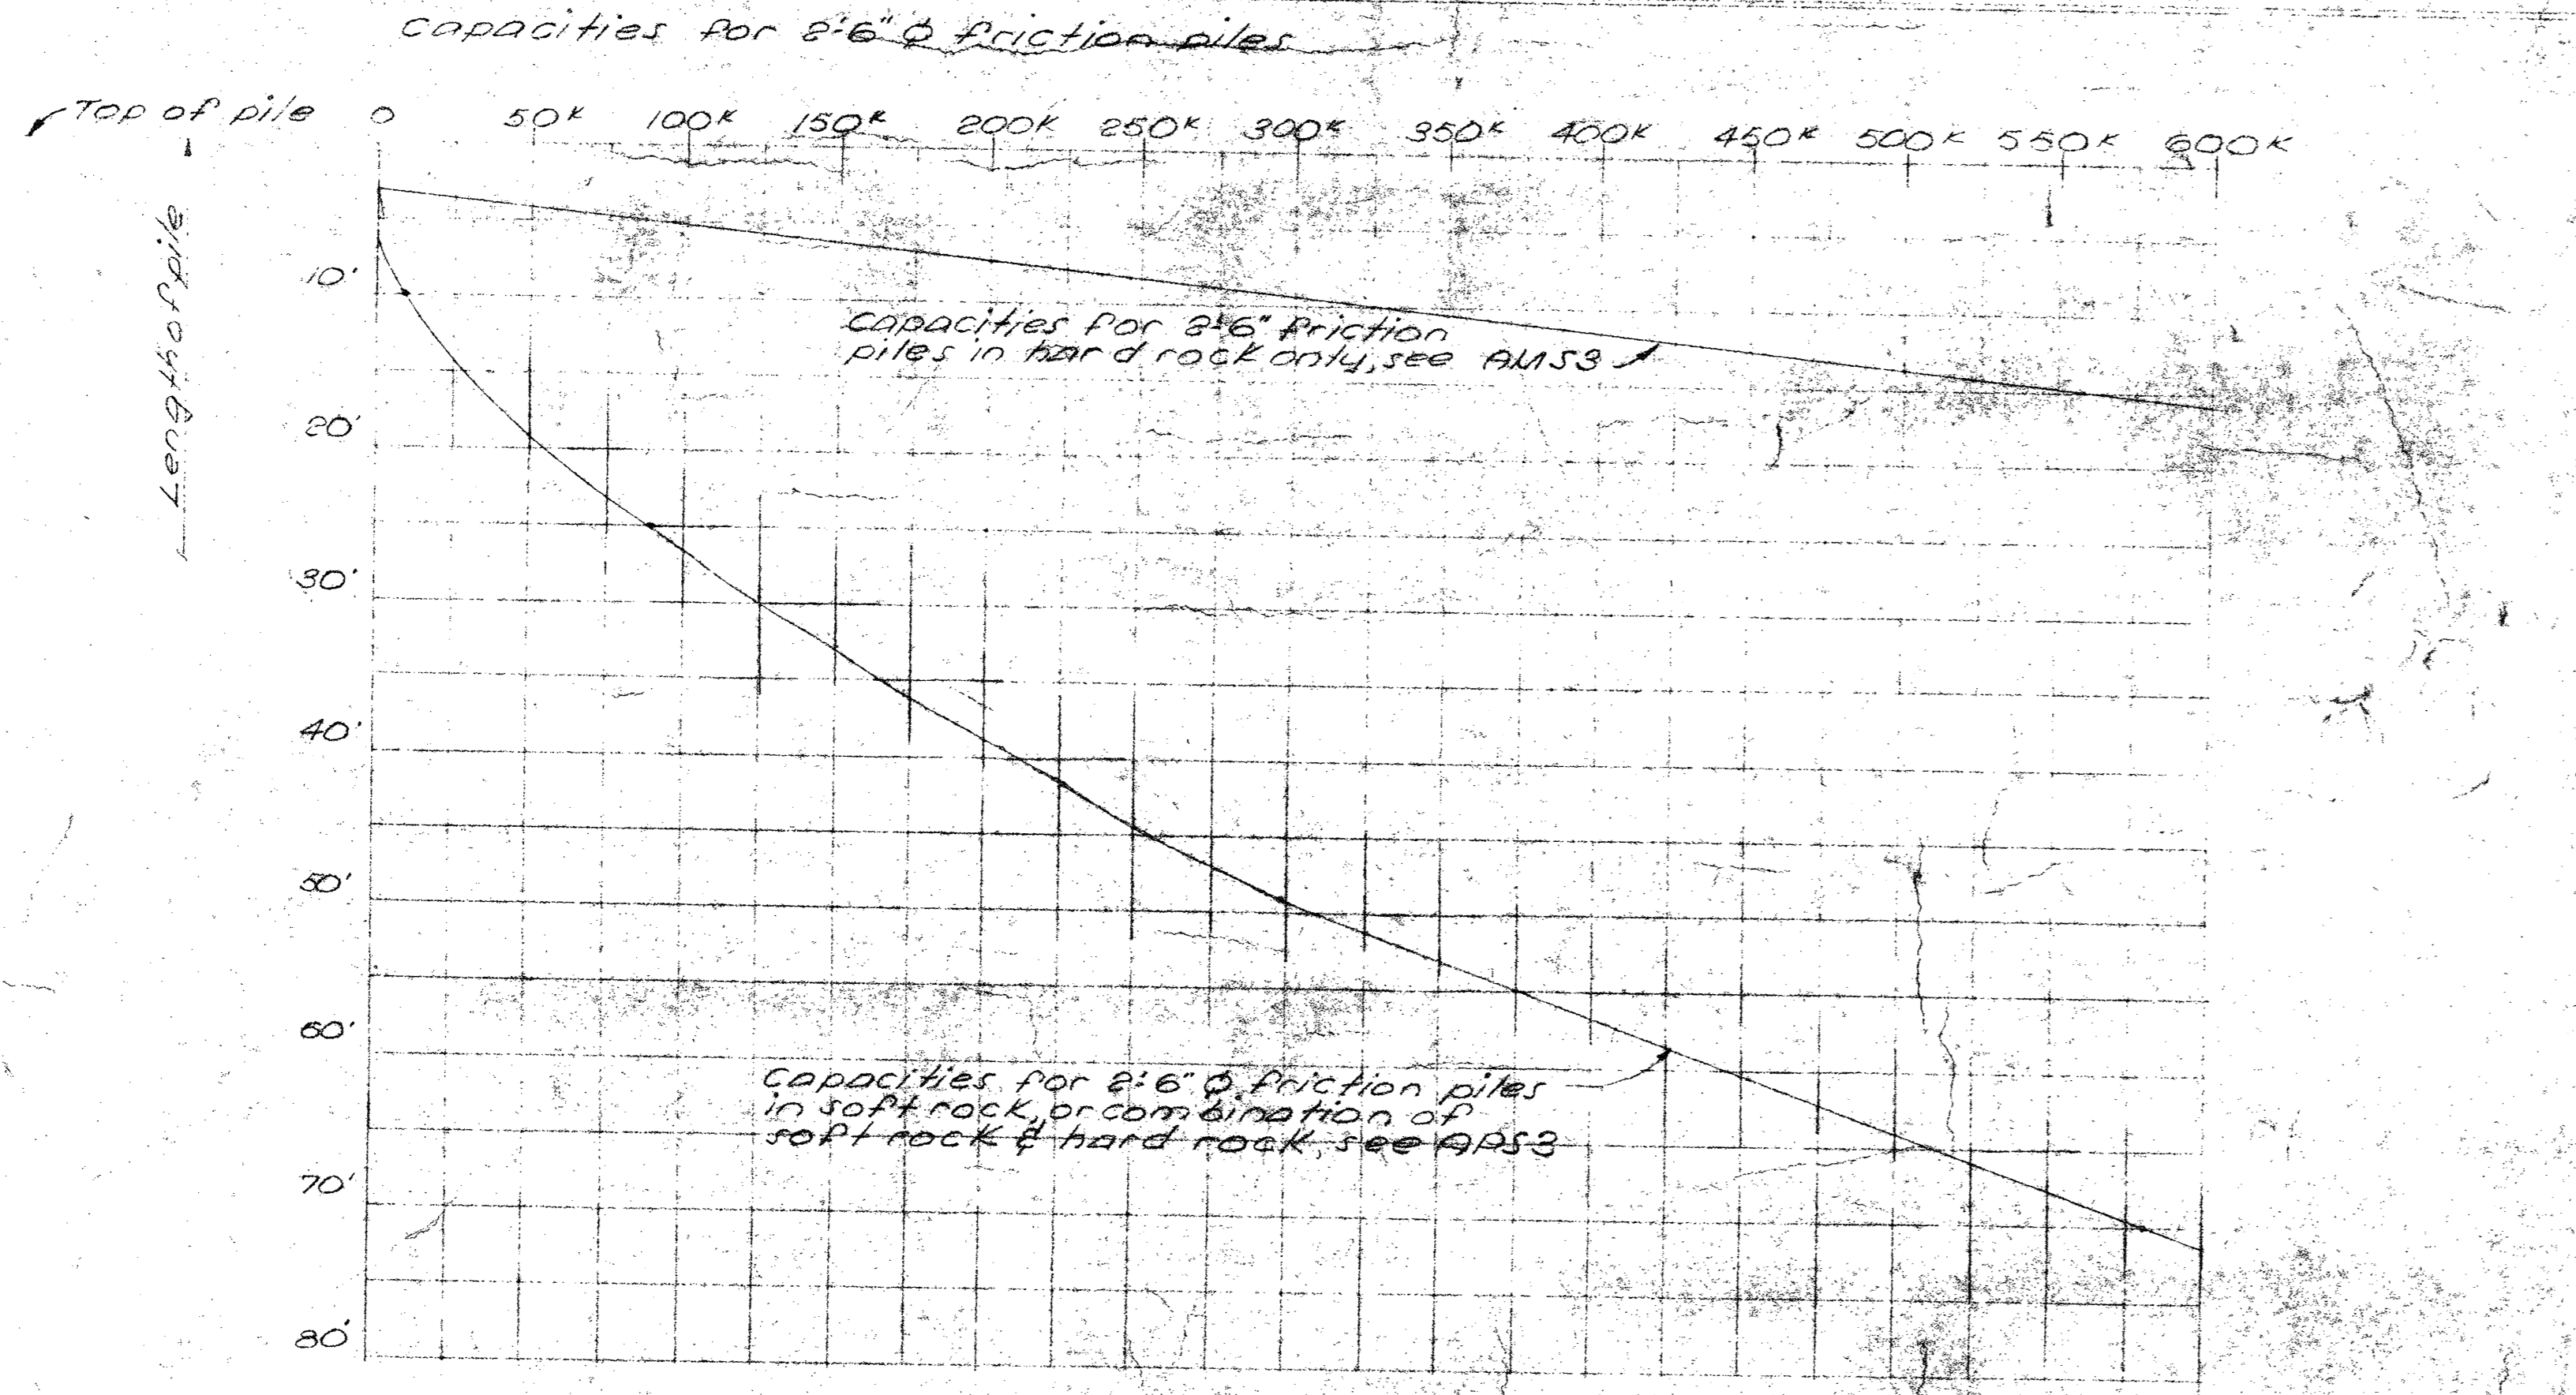 Capacities for 2'-6" φ friction piles
Top of pile 0 50K 100K 150K 200K 250K 300K 350K 400K 450K 500K 550K 600K
Length of pile
10'
20'
30'
40'
50'
60'
70'
80'
Capacities for 2'-6" friction
piles in hard rock only, see AMS3
Capacities for 2'-6" φ friction piles
in soft rock, or combination of
soft rock & hard rock, see APS3